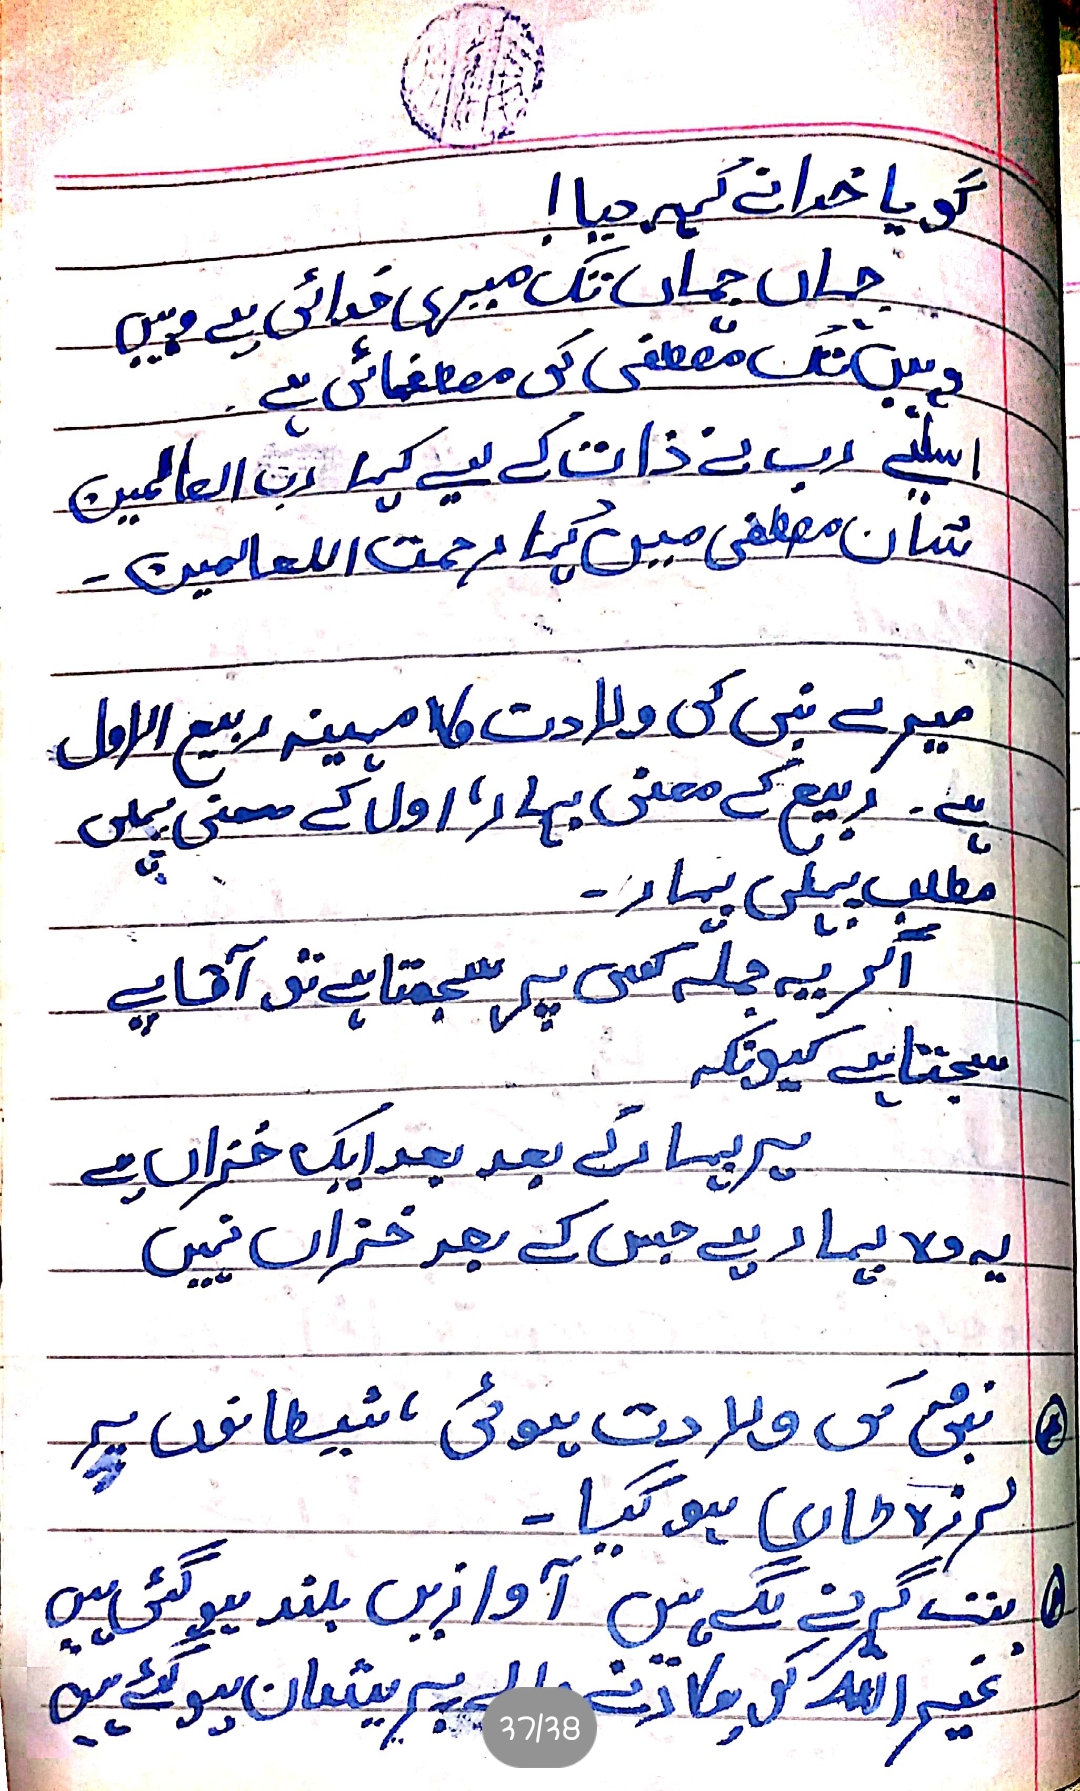 گویا خدا نے کہہ دیا!
جہاں جہاں تک میری خدائی ہے وہیں
وہیں تک مصطفی کی مصطفائی ہے۔
اسلئے رب نے ذات کے لیے کہا رب العالمین
شان مصطفی میں کہا رحمت اللعالمین ۔
میرے نبی کی ولادت کا مہینہ ربیع الاول
ہے۔ ربیع کے معنی بہار، اول کے معنی پہلی
مطلب پہلی بہار ۔
اگر یہ جملہ کسی پر سجھتا ہے تو آقا پے
سجتا ہے کیونکہ
ہر بہار کے بعد بعد ایک خزاں ہے
یہ وہ بہار ہے جس کے بعد خزاں نہیں
نبیؐ کی ولادت ہوئی ، شیطانوں پر
لرزہ طاری ہو گیا ۔
بت گرنے لگے ہیں آوازیں بلند ہو گئی ہیں
غیر اللہ کو پکارنے والے پریشان ہو گئے ہیں
37/38